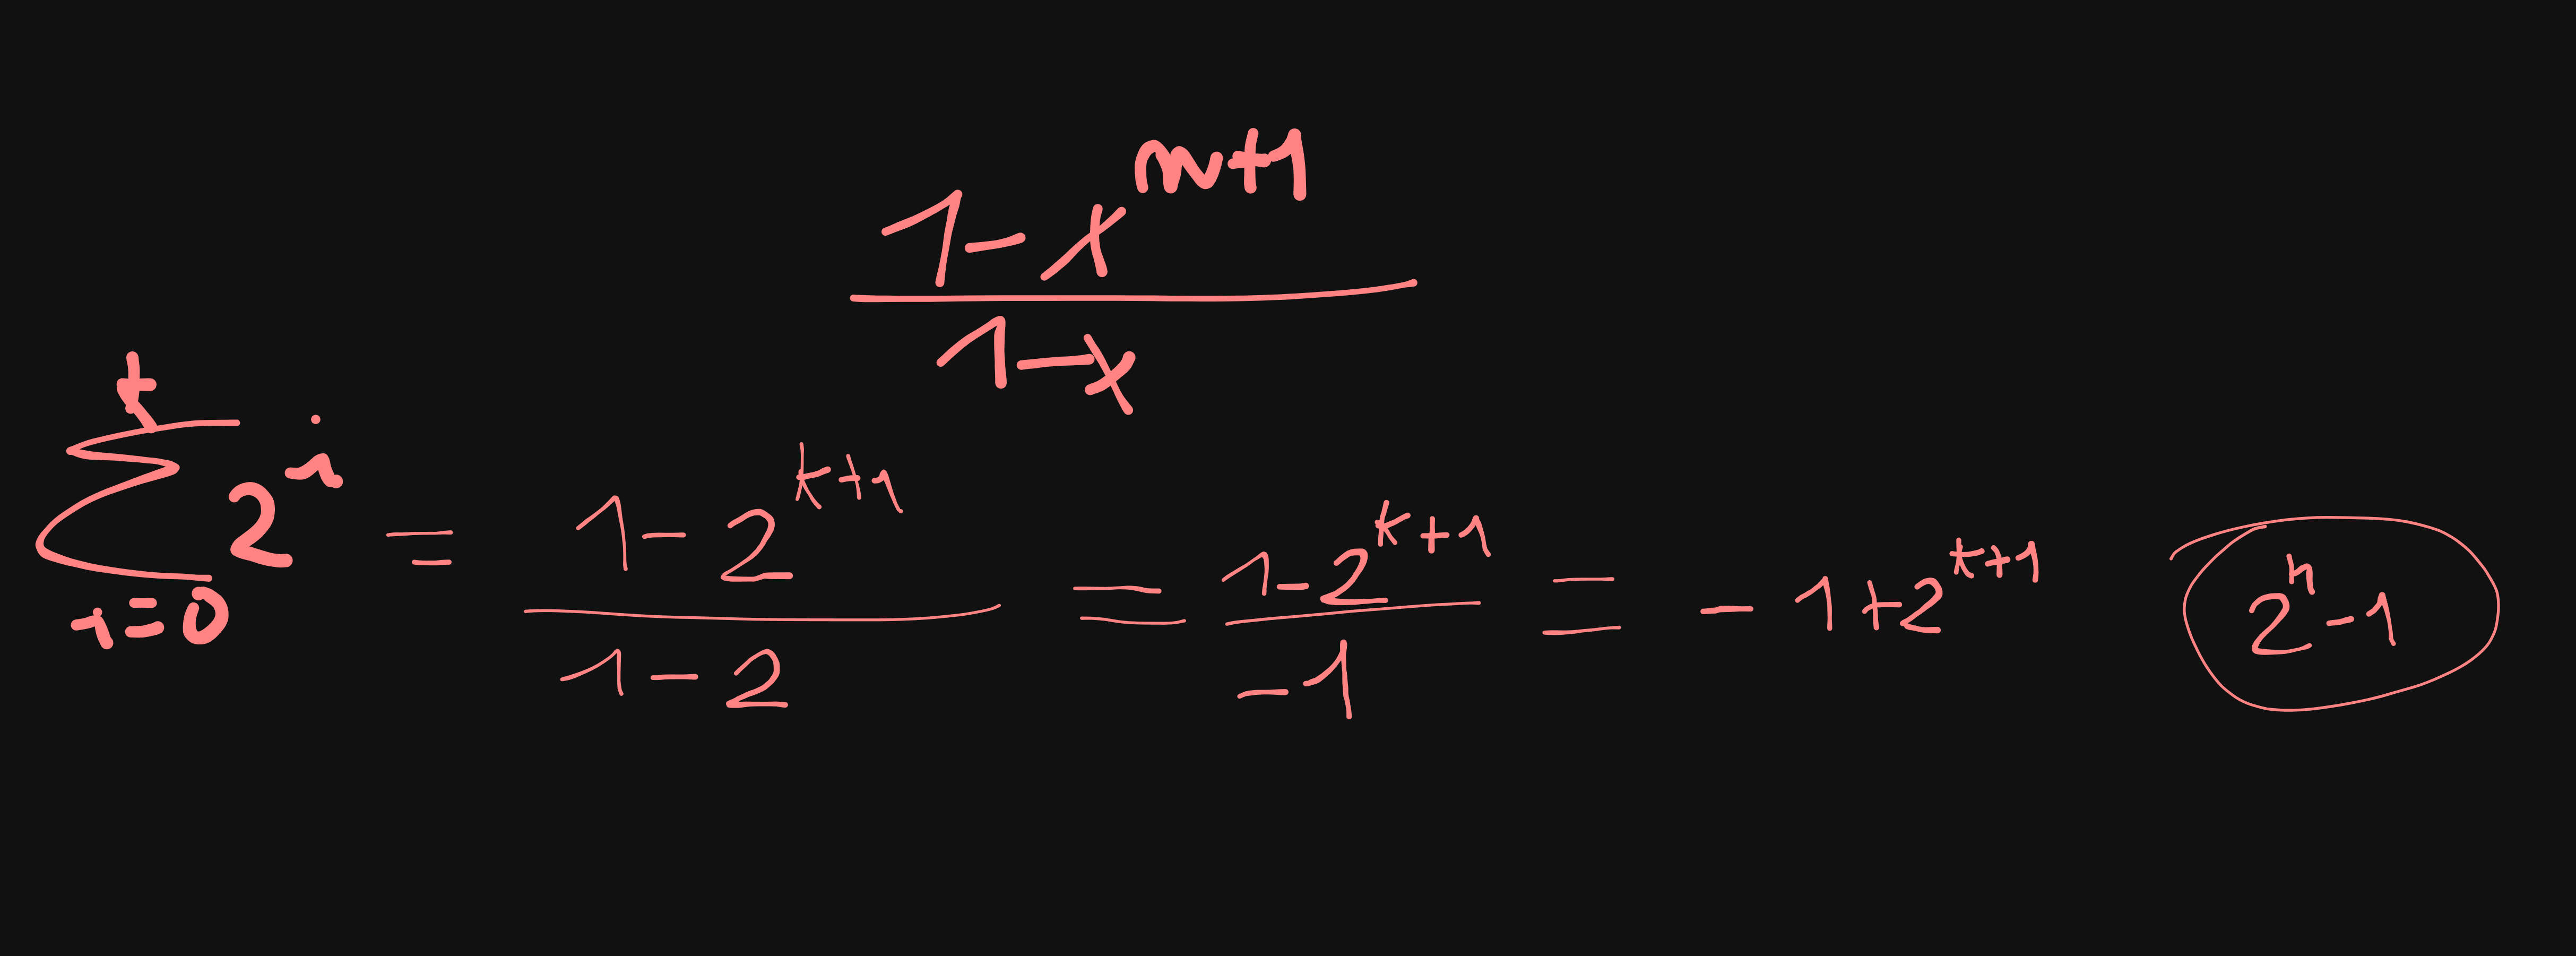 1-x^{n+1}
1-x
k
∑ 2^i = (1-2^{k+1})/(1-2) = (1-2^{k+1})/(-1) = -1+2^{k+1} 2^n-1
i=0